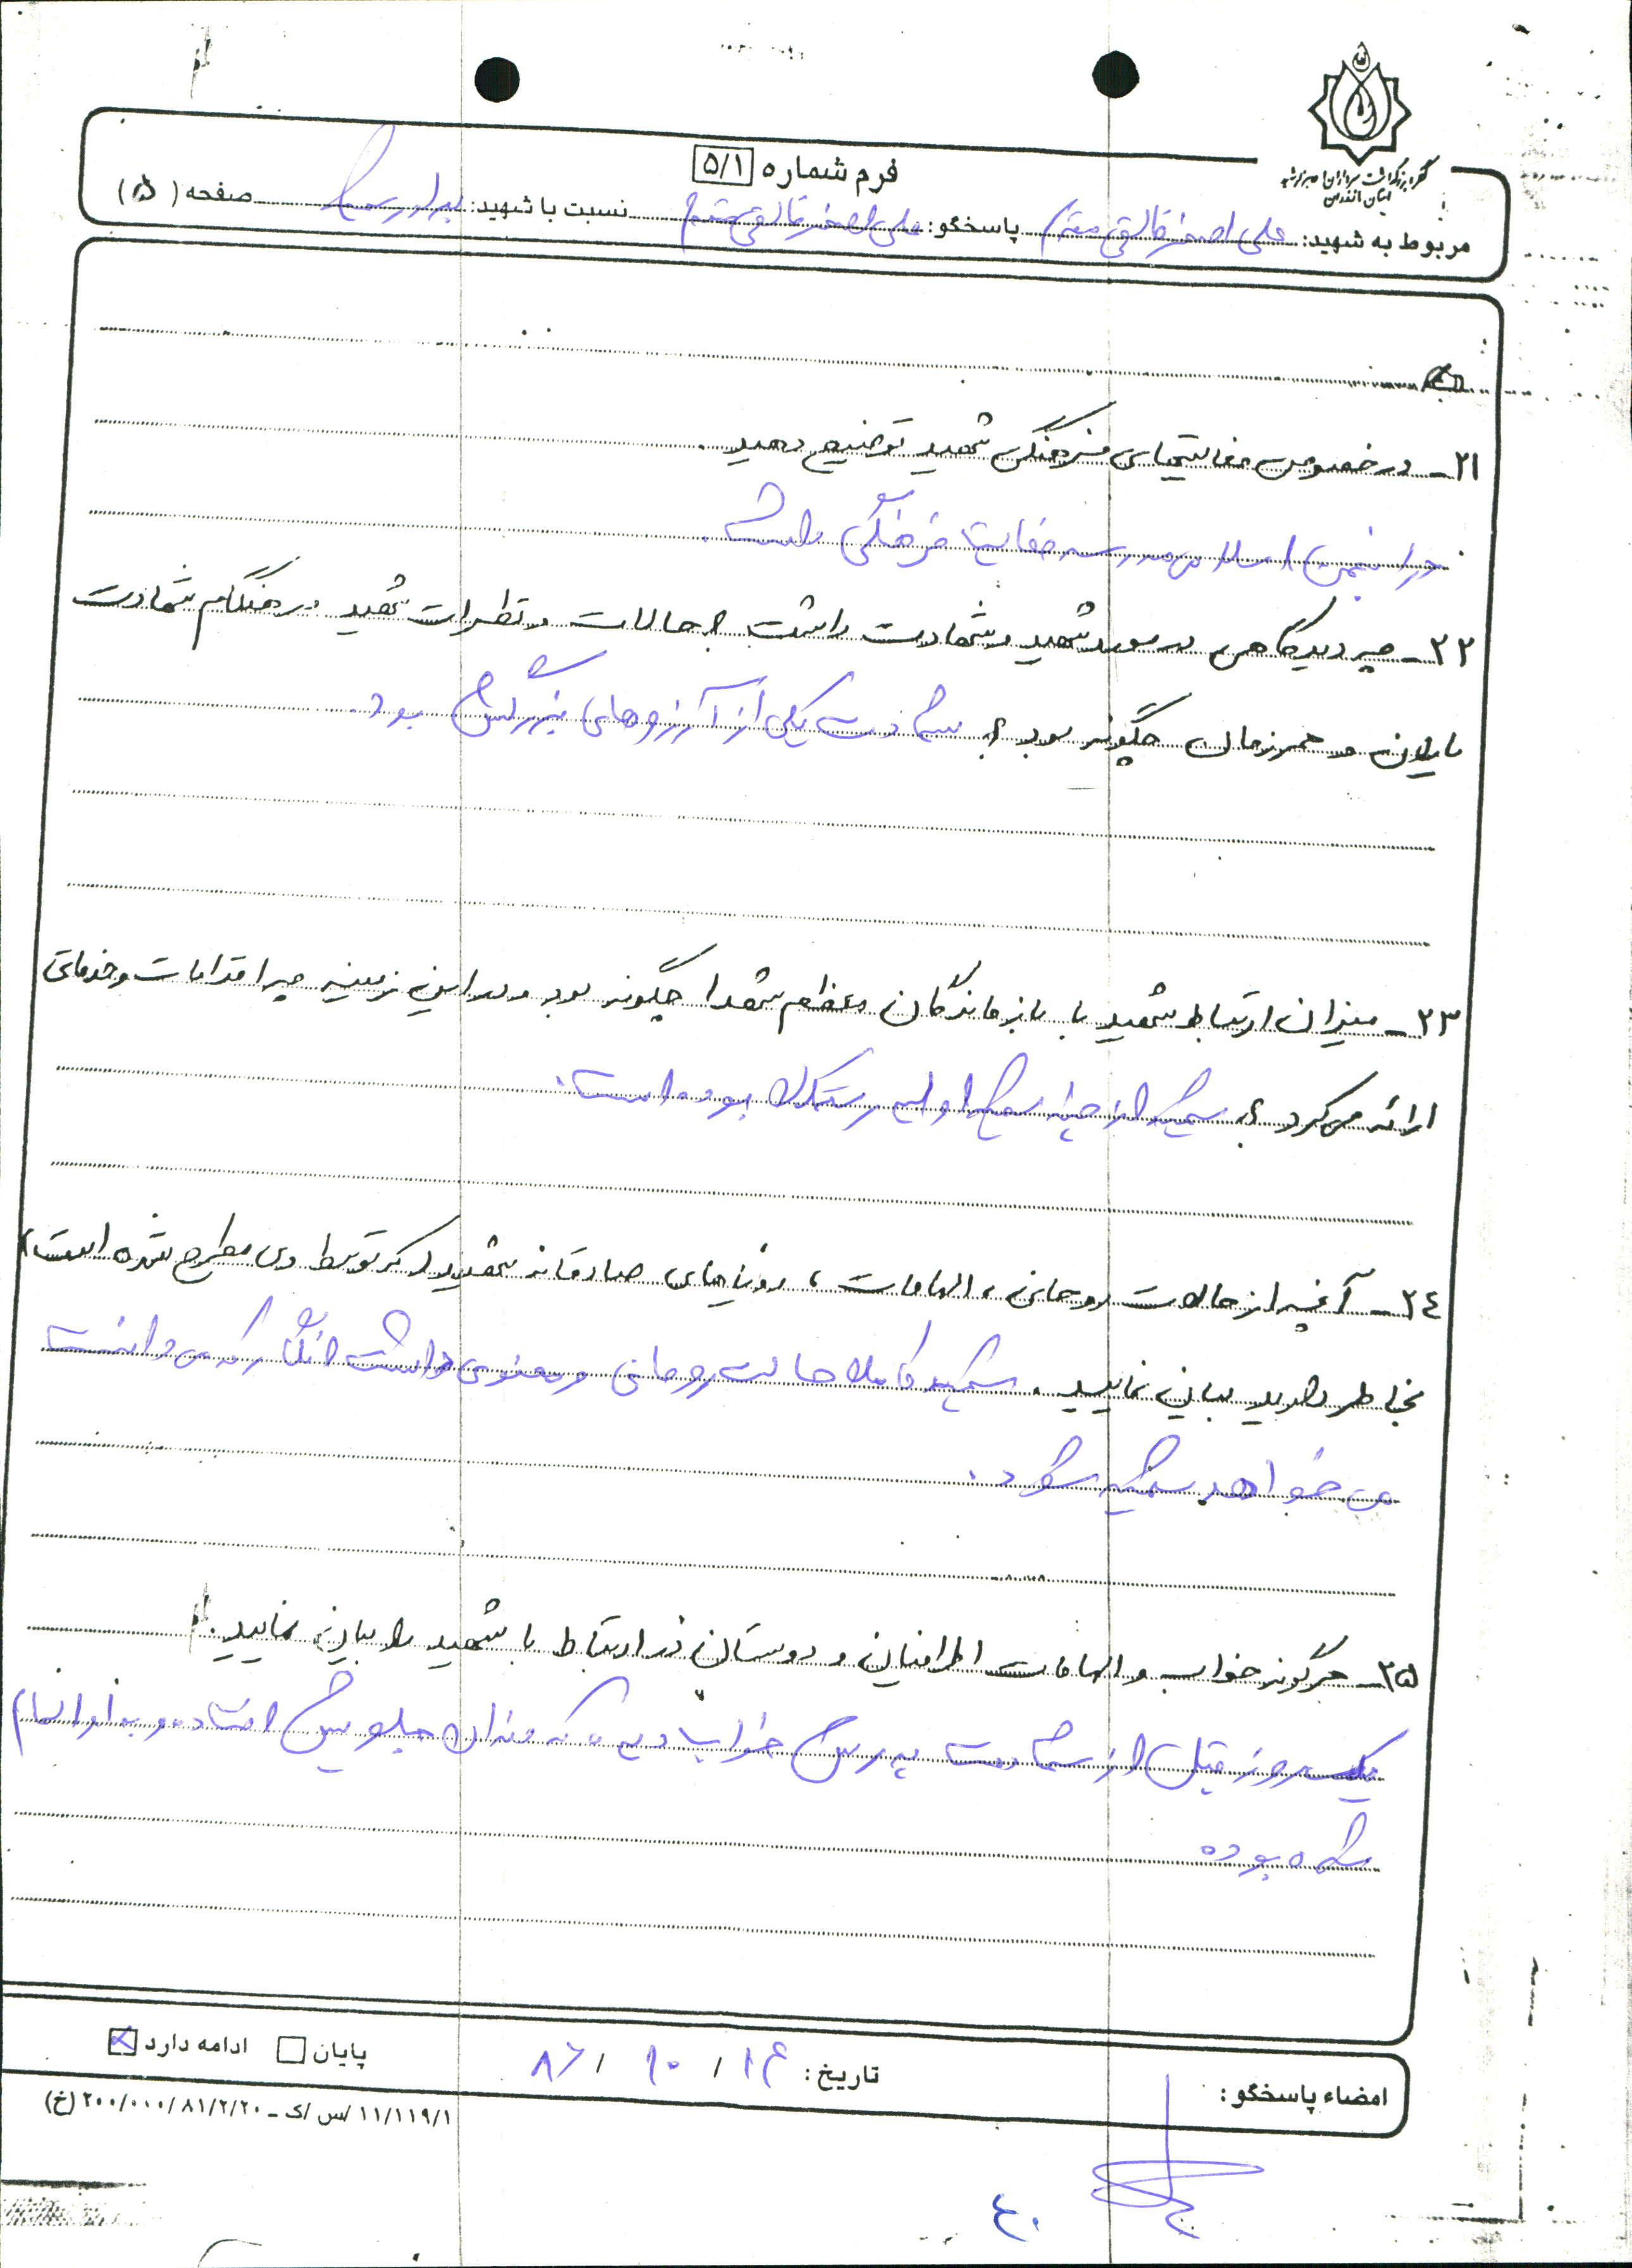 کنگره بزرگداشت سرداران و
استان مازندران
فرم شماره ۵/۱
مربوط به شهید: علی اصغر خالقی مقدم پاسخگو: علی اصغر خالقی مقدم نسبت با شهید: برادر شهید صفحه (۵)
۲۱- در خصوص فعالیتهای فرهنگی شهید توضیح دهید.
در انجمن اسلامی مدرسه فعالیت فرهنگی داشت.
۲۲- چه دیدگاهی در مورد شهید و شهادت داشت؟ حالات و نظرات شهید در هنگام شهادت
یاران و همرزمان چگونه بود؟ شهادت یکی از آرزوهای بزرگش بود.
۲۳- میزان ارتباط شهید با بازماندگان معظم شهدا چگونه بود و در این زمینه چه اقدامات و خدماتی
ارائه می‌کرد؟ شهید از جزء شهدای اولیه بوده است.
۲٤- آنچه از حالات روحانی، الهامات، رؤیاهای صادقانه شهید (که توسط وی مطرح شده است)
بخاطر دارید بیان نمایید. شهید کاملا حالت روحانی و معنوی داشت انگار که می دانست
می خواهد شهید شود.
۲۵- هرگونه خواب و الهامات اطرافیان و دوستان در ارتباط با شهید را بیان نمایید.
یک روز قبل از شهادت پدرش خواب دیده که دندان جلویش افتاده و به او الهام
شده بوده
امضاء پاسخگو:
تاریخ: ۱۴ / ۱۰ / ۸۶
پایان ادامه دارد
۱۱/۱۱۹/۱ /س /ک - ۸۱/۲/۲۰ /۲۰۰/۰۰۰ (خ)
٤۰